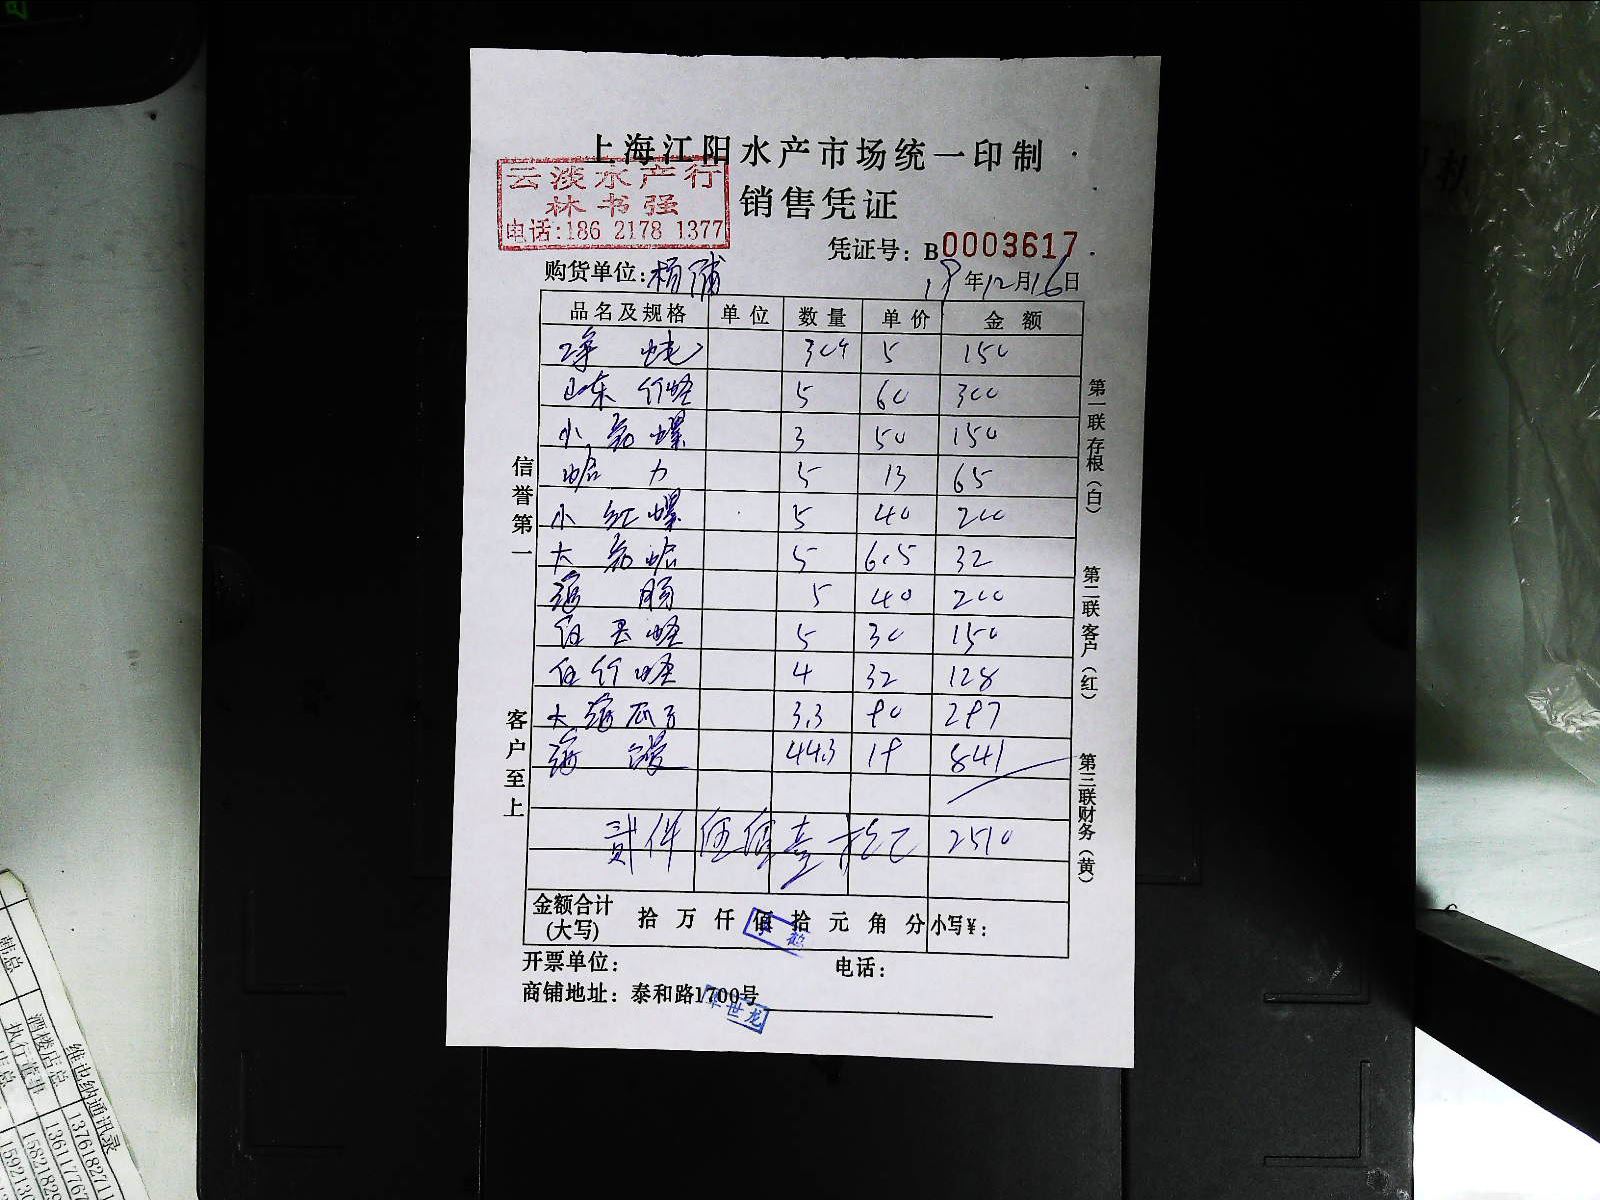 上海江阳水产市场统一印制
云淡水产行
林书强
电话:186 2178 1377
销售凭证
凭证号: B0003617
购货单位:杨浦
18年12月16日
品名及规格 单位 数量 单价 金额
5 150
山东竹蛏 5 60 300
小花螺 3 50 150
蛤力 5 13 65
小红螺 5 40 200
大花蛤 5 6.5 32
海肠 5 40 200
蛏 5 30 150
竹蛏 4 32 128
大海瓜子 3.3 90 297
海 44.3 19 841
贰仟伍佰壹拾元 2510
金额合计
(大写) 拾 万 仟 佰 拾 元 角 分 小写¥:
开票单位: 电话:
商铺地址: 泰和路1700号
世龙
信誉第一
客户至上
第一联存根(白)
第二联客户(红)
第三联财务(黄)
维也纳通讯录
酒楼店总 1376182711
执行董事 136117767